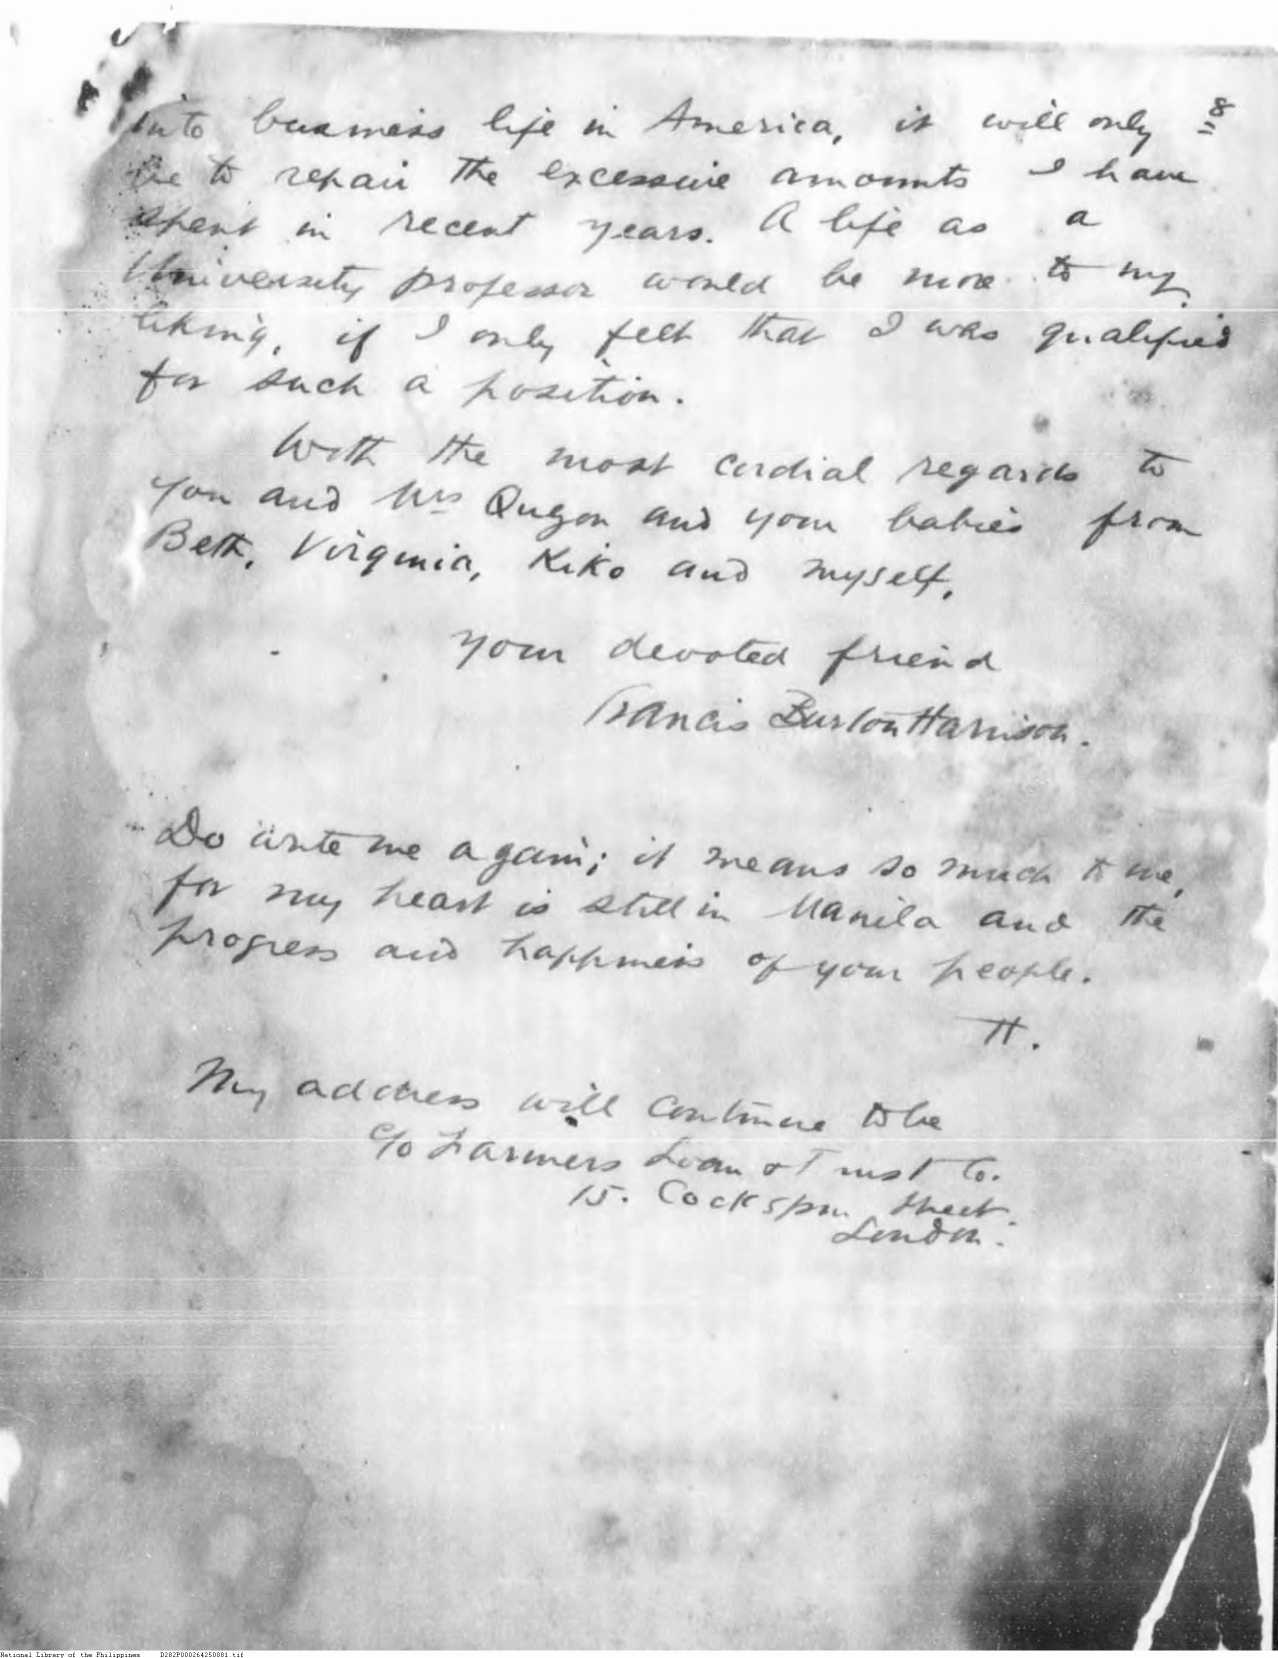 8
into business life in America, it will only
be to repair the excessive amounts I have
spent in recent years. A life as a
University professor would be more to my
liking, if I only felt that I was qualified
for such a position.
With the most cordial regards to
you and Mrs Quezon and your babies from
Beth, Virginia, Kiko and myself,
Your devoted friend
Francis Burton Harrison.
Do write me again; it means so much to me,
for my heart is still in Manila and the
progress and happiness of your people.
H.
My address will continue to be
c/o Farmers Loan & Trust Co.
15. Cockspur Street.
London.
National Library of the Philippines D282P000264250081.tif